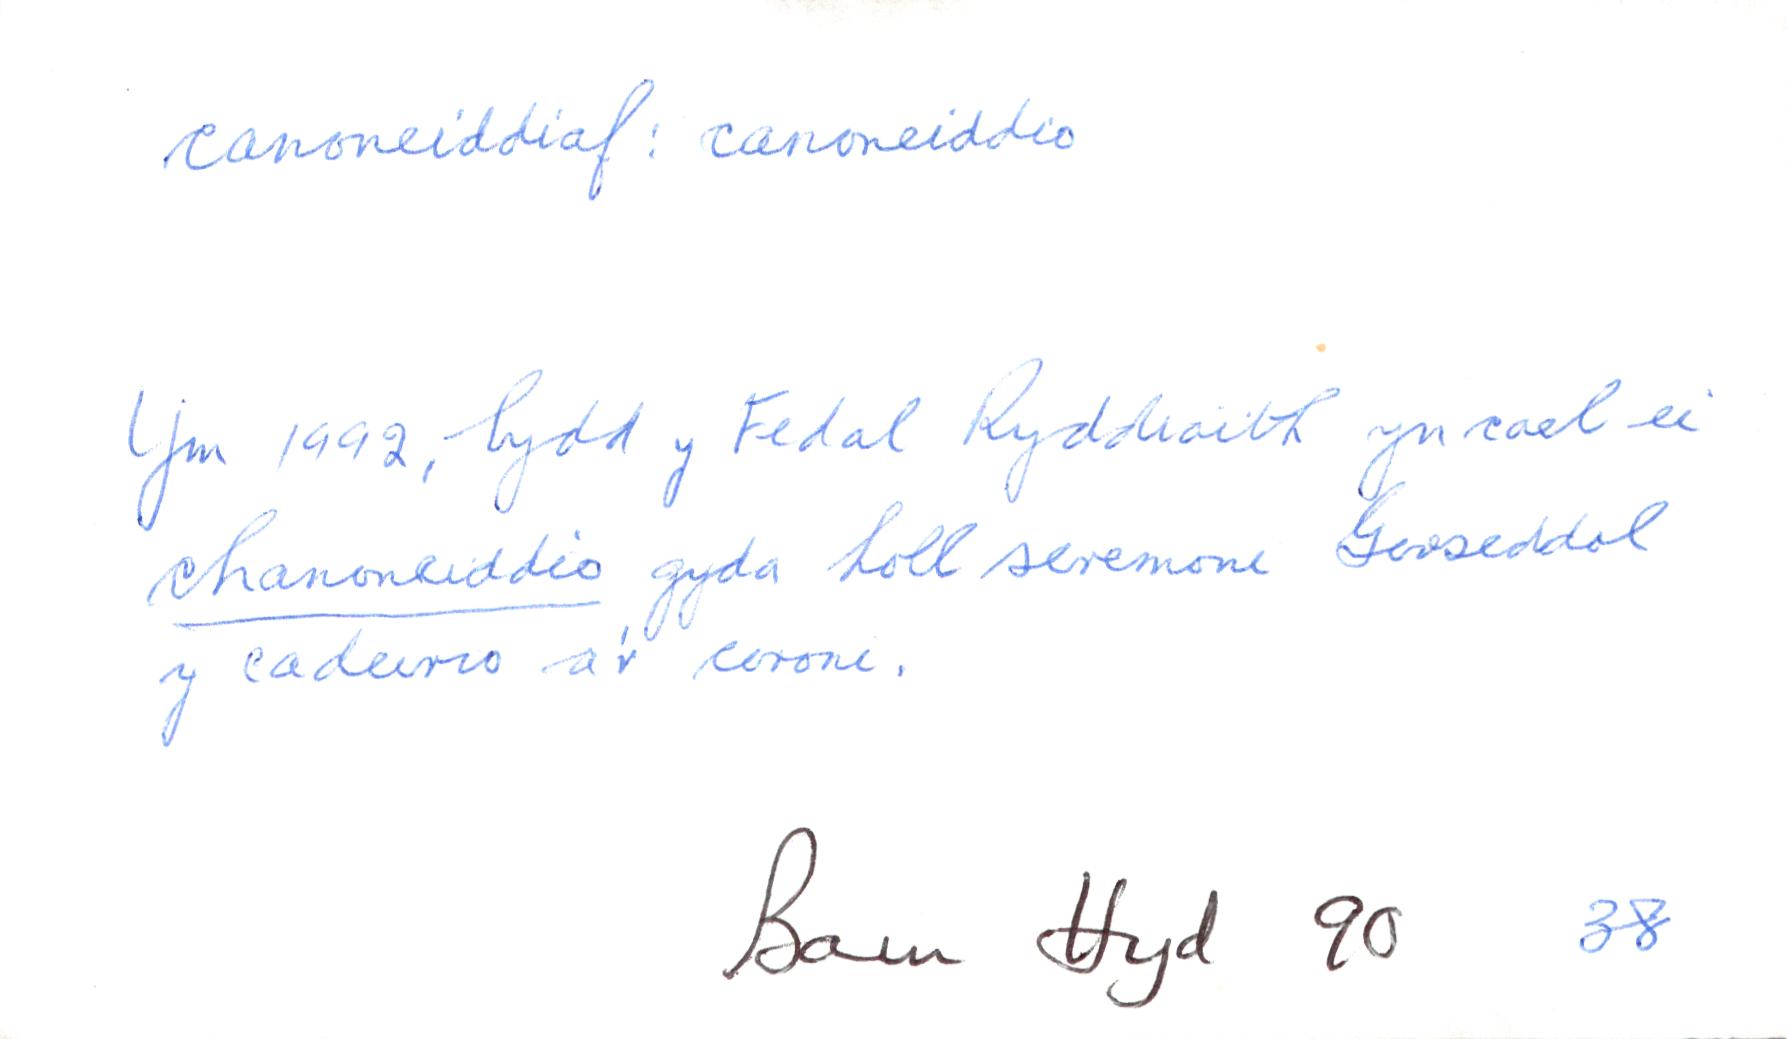 canoneiddiaf: canoneiddio
Ym 1992, bydd y Fedal Ryddiaith yn cael ei
chanoneiddio gyda holl seremoni Gorseddol
y cadeirio a'r coroni.
Barn Hyd 90 38